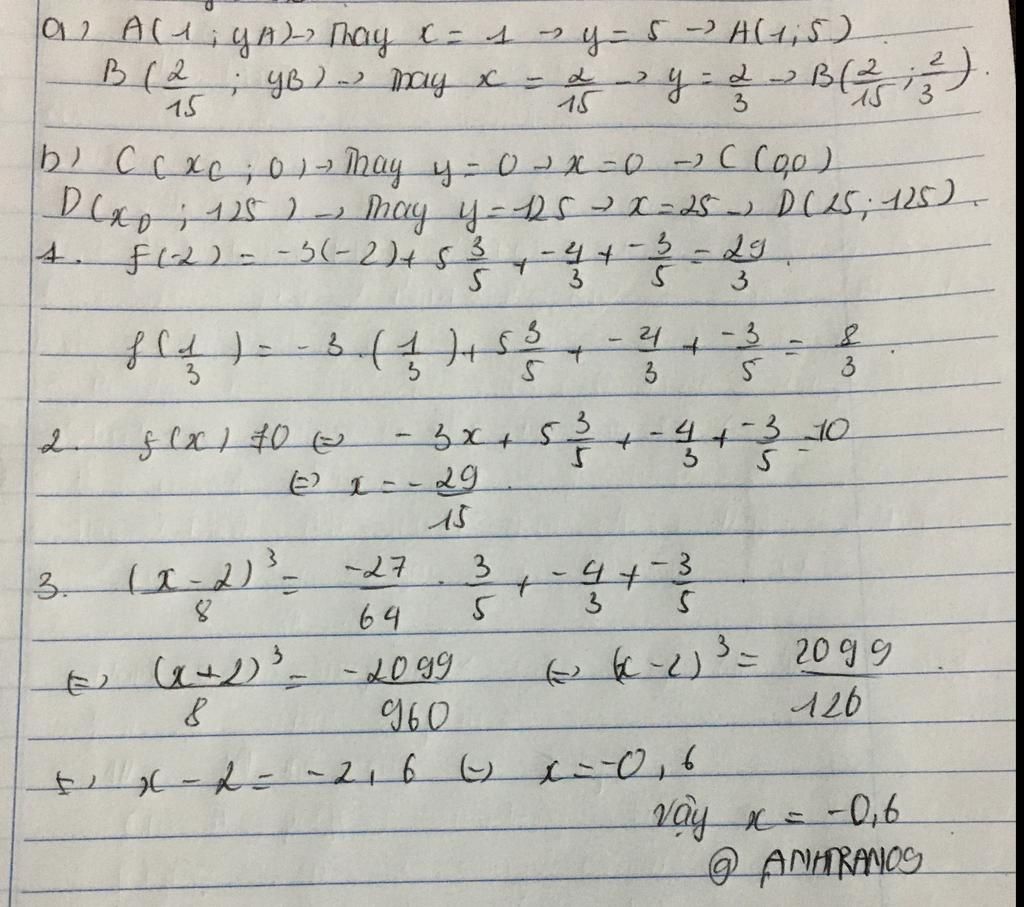 a) A(1; yA) → Thay x = 1 → y = 5 → A(1; 5).
B(2/15; yB) → Thay x = 2/15 → y = 2/3 → B(2/15; 2/3).
b) C(xC; 0) → Thay y = 0 → x = 0 → C(0,0)
D(xD; 125) → Thay y = 125 → x = 25 → D(25; 125).
1. f(-2) = -3(-2) + 5 3/5 + -4/3 + -3/5 = 29/3.
f(1/3) = -3.(1/3) + 5 3/5 + -4/3 + -3/5 = 8/3.
2. f(x) = 10 ⇔ -3x + 5 3/5 + -4/3 + -3/5 = 10
⇔ x = -29/15.
3. (x-2)³/8 = -27/64 . 3/5 + -4/3 + -3/5
⇔ (x+2)³/8 = -2099/960 ⇔ (x-2)³ = 2099/120.
⇔ x - 2 = -2,6 ⇔ x = -0,6
vậy x = -0,6
@ ANHTRAN09